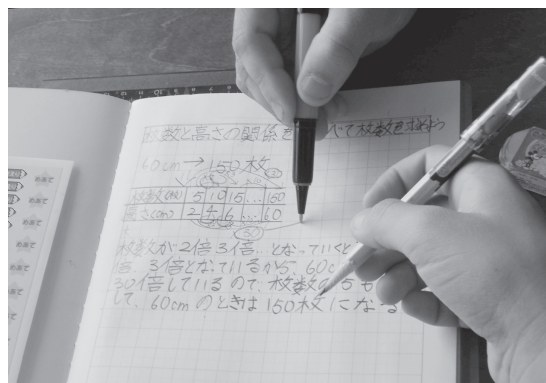 枚数と高さの関係を べて枚数を求めよう
60cm→150枚
枚数(枚) 5 10 15 … 150
高さ(cm) 2 4 6 … 60
30
枚数が2倍3倍…となっていくと
倍、3倍となっているから、60c
30倍しているので、枚数の5も
して、60cmのときは150枚になる
めあて
めあて
めあて
めあて
めあて